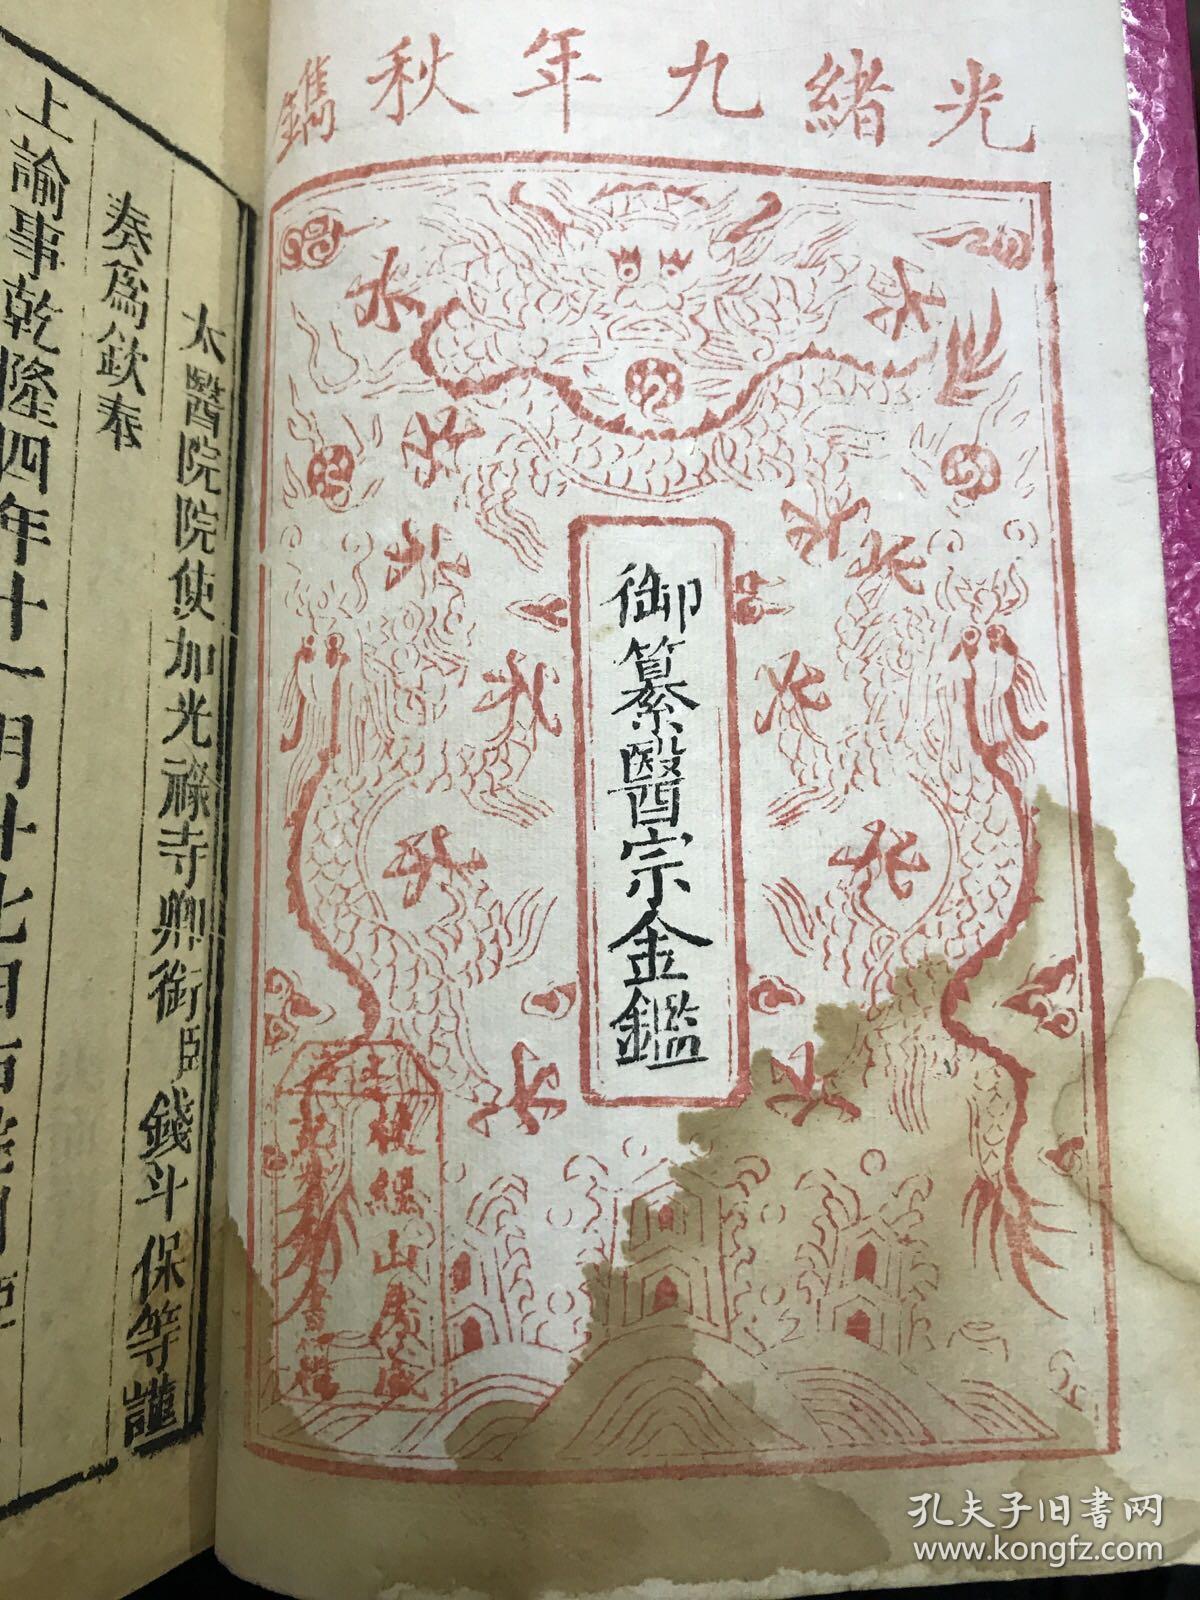 光緒九年秋鐫
御纂醫宗金鑑
太醫院院使加光祿寺卿銜臣錢斗保等謹
奏爲欽奉
上諭事乾隆四年十一月十七日
孔夫子旧书网
www.kongfz.com